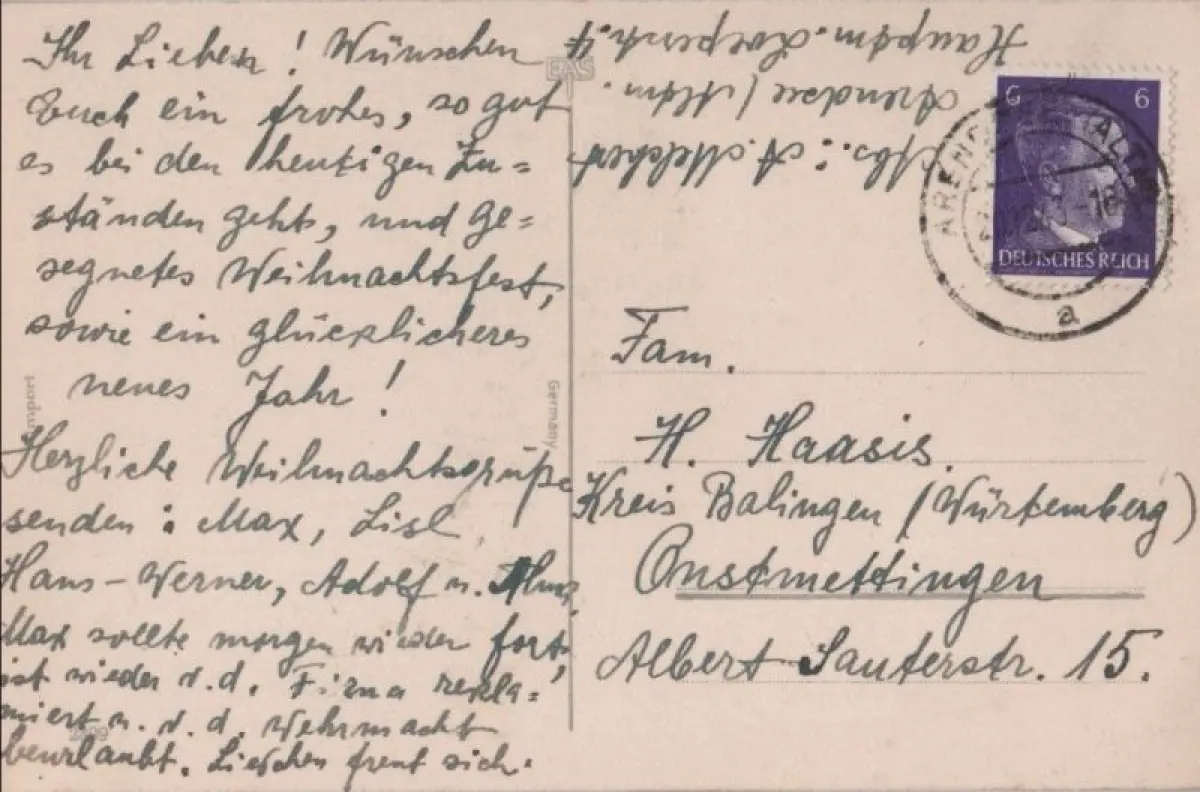 Ihr Lieben! Wünschen
Euch ein frohes, so gut
es bei den heutigen Zu=
ständen geht, und ge=
segnetes Weihnachtsfest,
sowie ein glücklicheres
neues Jahr!
Herzliche Weihnachtsgrüße
senden: Max, Lisl
Hans-Werner, Adolf u.
Max sollte morgen wieder fort,
ist wieder v. d. Firma rekla=
miert u. v. d. Wehrmacht
beurlaubt. Lieschen freut sich.
EAS
Germany
Abs.: A. Melchert
Arendsee/Altm.
Hauptm.
6 6
DEUTSCHES REICH
ARENDSEE (ALTM
a
Fam.
H. Haasis.
Kreis Balingen (Württemberg)
Onstmettingen
Albert Sauterstr. 15.